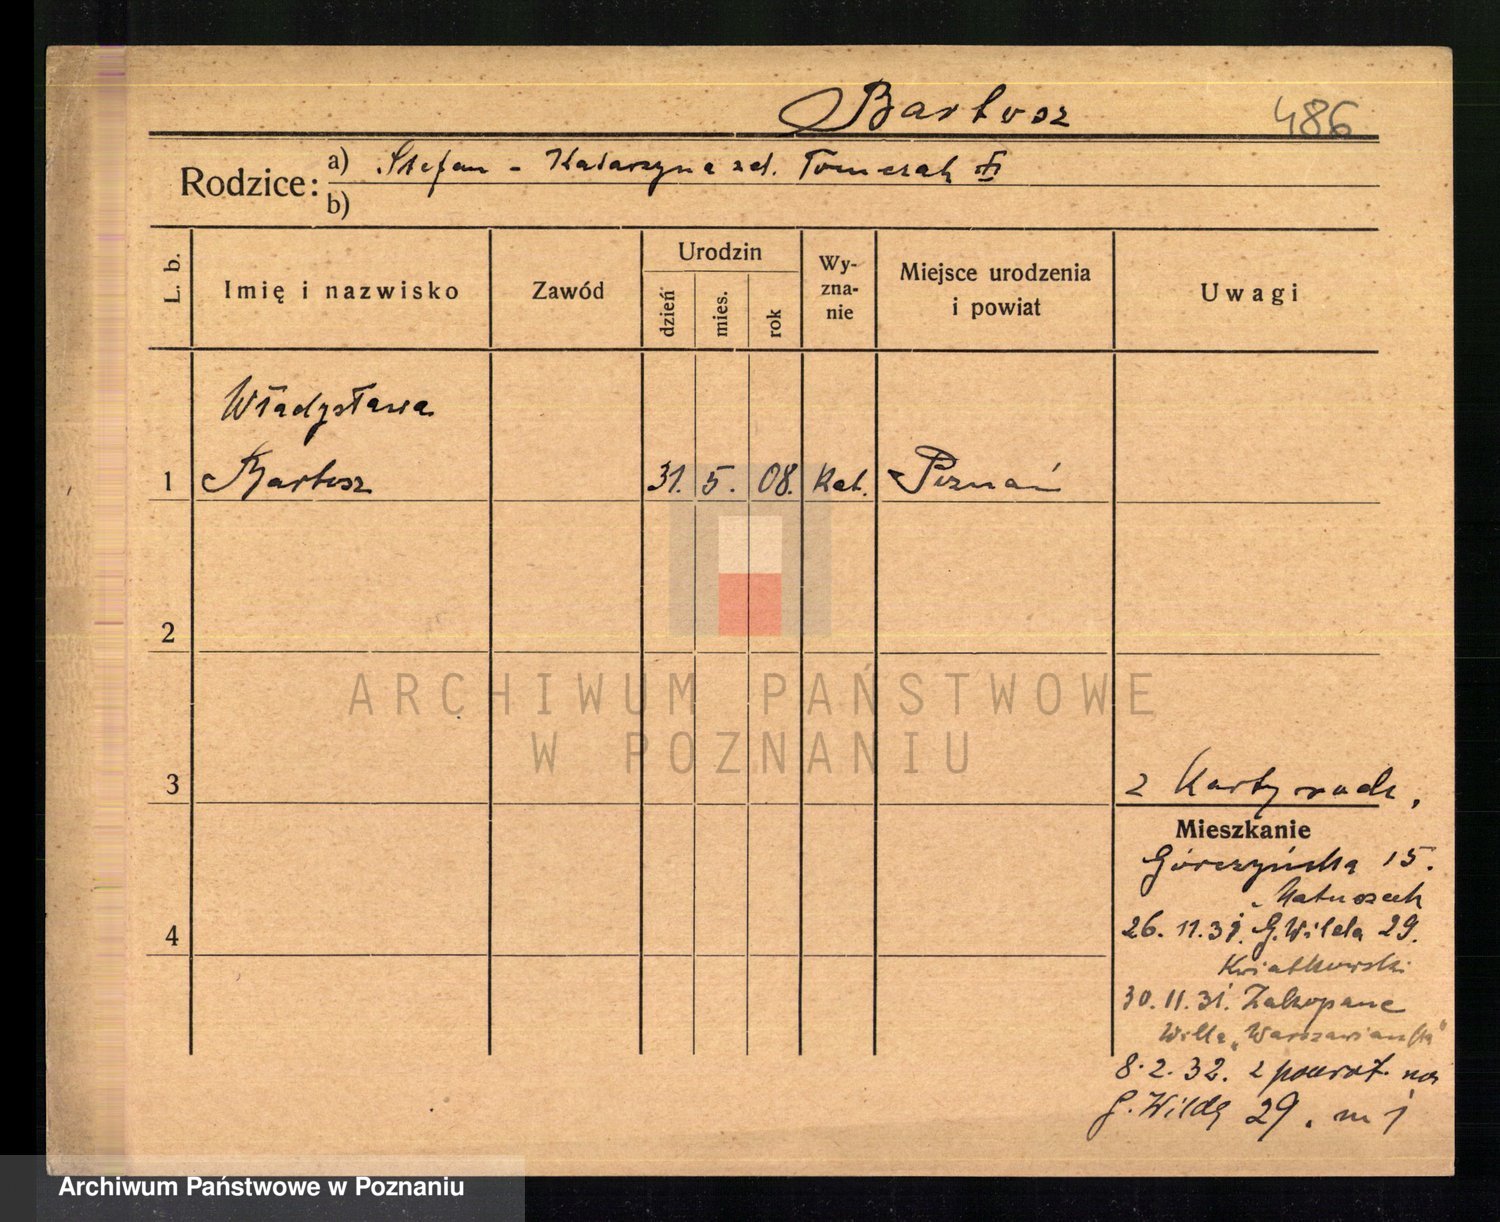 Bartosz 486
Rodzice: a) Stefan - Katarzyna zd. Tomczak
b)
L. b. Imię i nazwisko Zawód Urodzin dzień mies. rok Wy-zna-nie Miejsce urodzenia i powiat Uwagi
Władysława
1 Bartosz 31. 5. 08. Kat. Poznań
2
ARCHIWUM PAŃSTWOWE
W POZNANIU
3
z Karty rodz.
Mieszkanie
Górczyńska 15.
Matuszak
4
26. 11. 31. G. Wilda 29.
Kwiatkowski
30. 11. 31. Zakopane
Willa „Warszawianka"
8. 2. 32. z powrot. na
G. Wildę 29. m 1
Archiwum Państwowe w Poznaniu